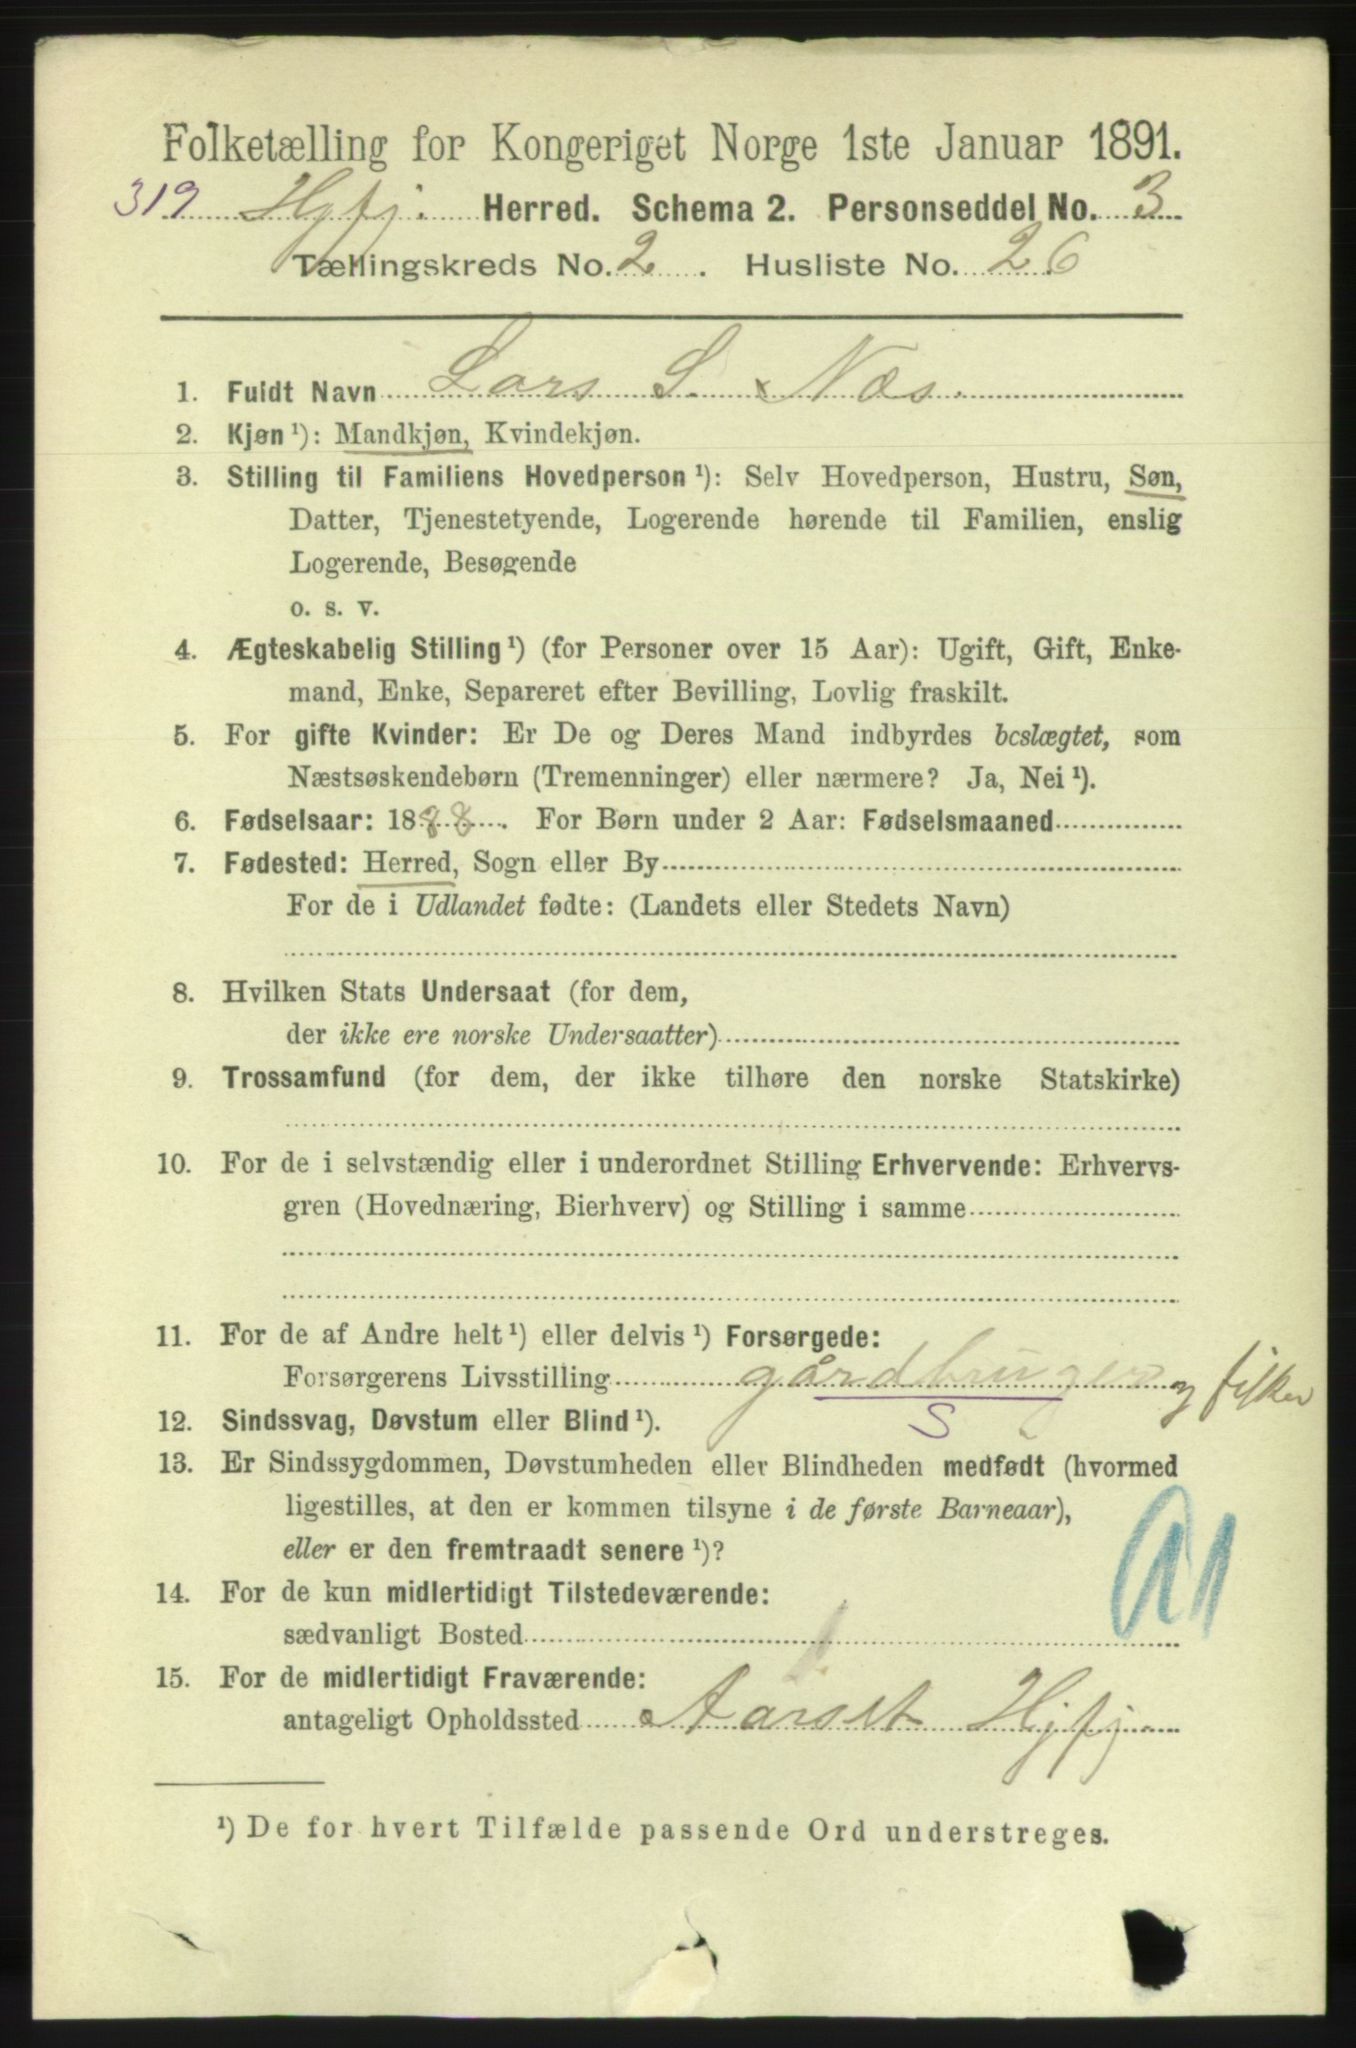 Folketælling for Kongeriget Norge 1ste Januar 1891.
319 Hjfj. Herred. Schema 2. Personseddel No. 3
Tællingskreds No. 2. Husliste No. 26
1. Fuldt Navn Lars S. x Næs.
2. Kjøn ¹): Mandkjøn, Kvindekjøn.
3. Stilling til Familiens Hovedperson ¹): Selv Hovedperson, Hustru, Søn,
Datter, Tjenestetyende, Logerende hørende til Familien, enslig
Logerende, Besøgende
o. s. v.
4. Ægteskabelig Stilling ¹) (for Personer over 15 Aar): Ugift, Gift, Enke-
mand, Enke, Separeret efter Bevilling, Lovlig fraskilt.
5. For gifte Kvinder: Er De og Deres Mand indbyrdes beslægtet, som
Næstsøskendebørn (Tremenninger) eller nærmere? Ja, Nei ¹).
6. Fødselsaar: 1888. For Børn under 2 Aar: Fødselsmaaned
7. Fødested: Herred, Sogn eller By
For de i Udlandet fødte: (Landets eller Stedets Navn)
8. Hvilken Stats Undersaat (for dem,
der ikke ere norske Undersaatter)
9. Trossamfund (for dem, der ikke tilhøre den norske Statskirke)
10. For de i selvstændig eller i underordnet Stilling Erhvervende: Erhvervs-
gren (Hovednæring, Bierhverv) og Stilling i samme
11. For de af Andre helt ¹) eller delvis ¹) Forsørgede:
Forsørgerens Livsstilling gårdbruger og fisker
S
12. Sindssvag, Døvstum eller Blind ¹).
13. Er Sindssygdommen, Døvstumheden eller Blindheden medfødt (hvormed
ligestilles, at den er kommen tilsyne i de første Barneaar),
eller er den fremtraadt senere ¹)?
14. For de kun midlertidigt Tilstedeværende:
sædvanligt Bosted
15. For de midlertidigt Fraværende:
antageligt Opholdssted Aarset Hjfj
¹) De for hvert Tilfælde passende Ord understreges.